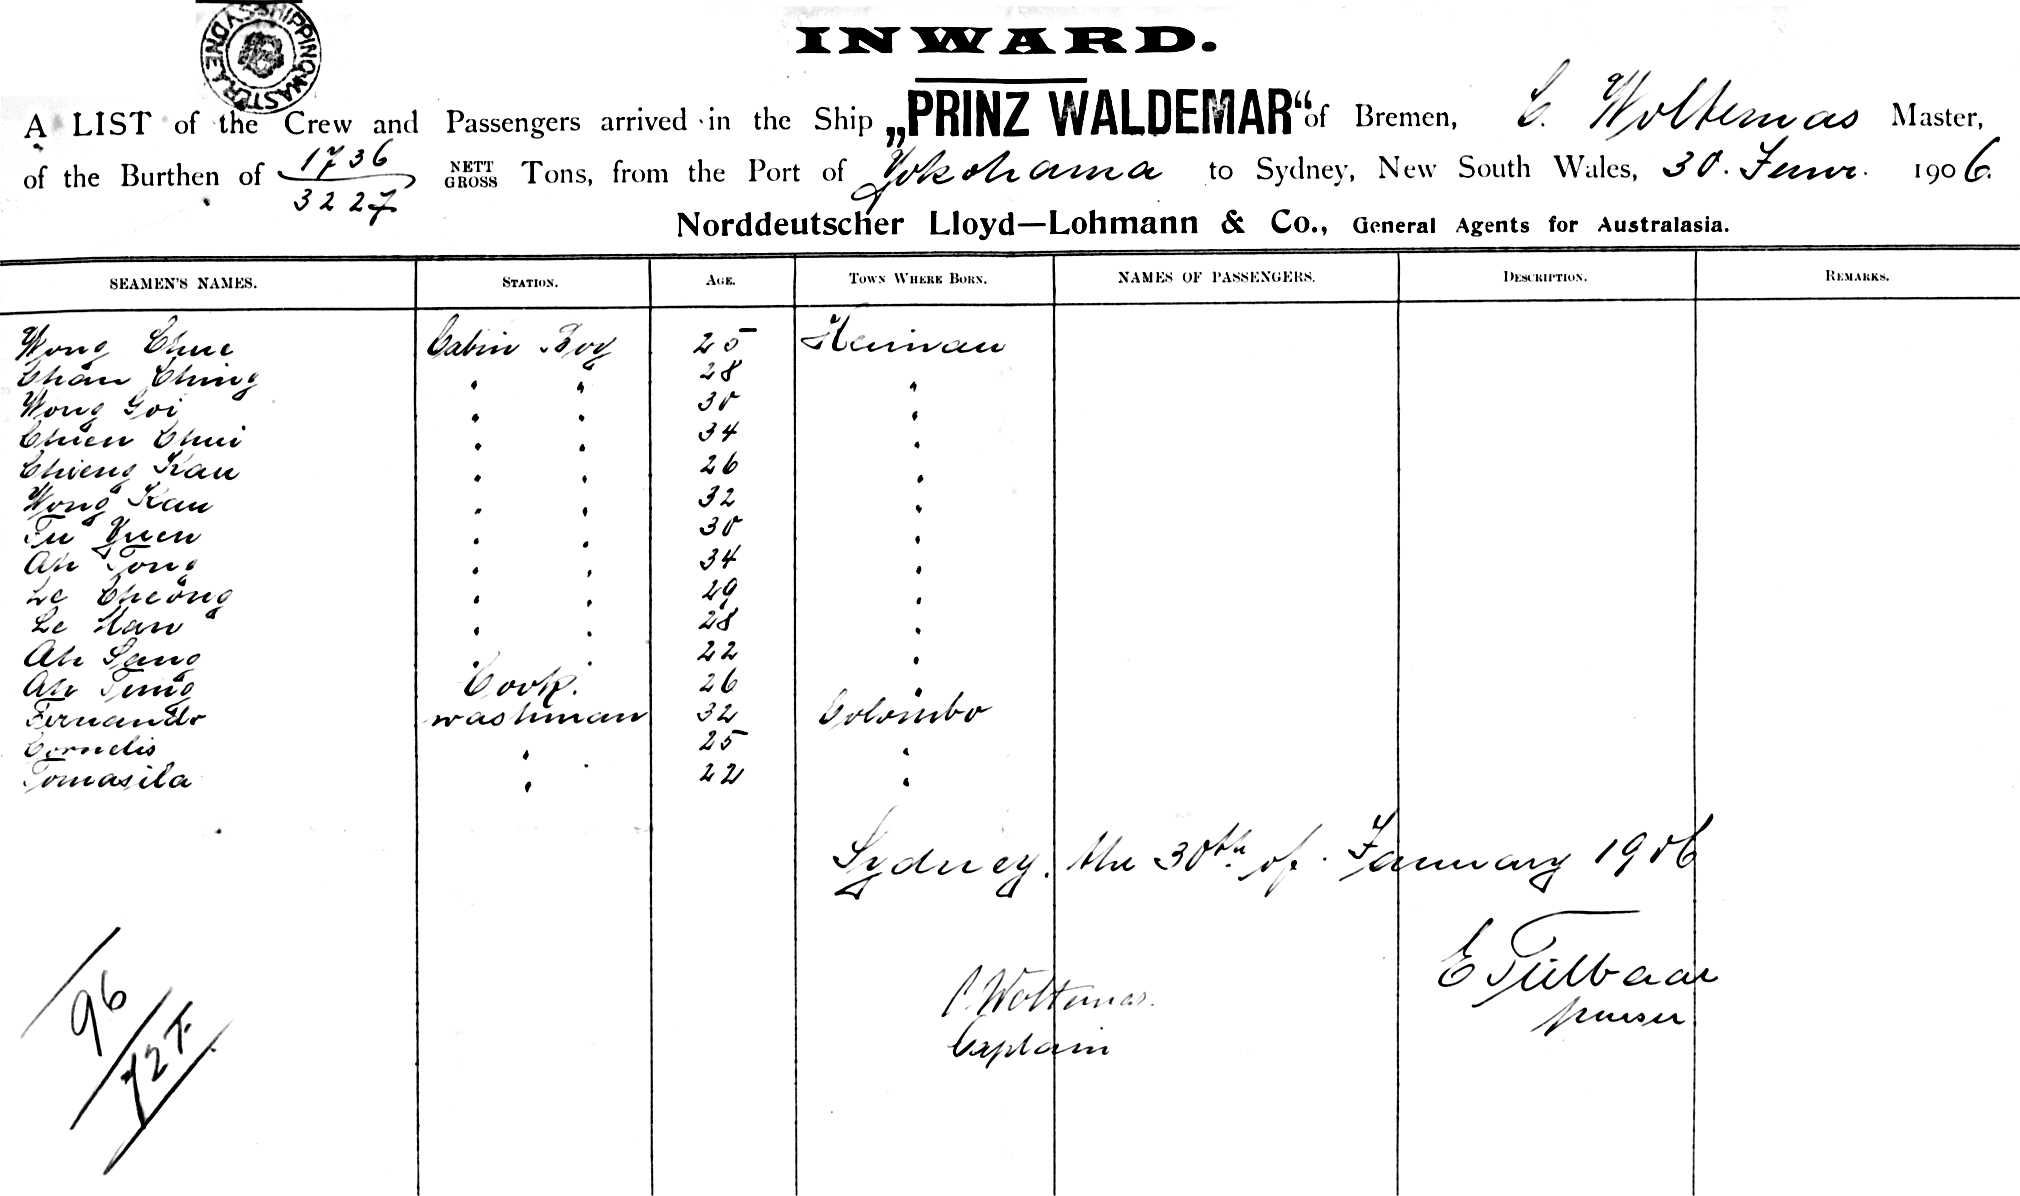 SHIPPING MASTER SYDNEY
INWARD.
A LIST of the Crew and Passengers arrived in the Ship „PRINZ WALDEMAR“ of Bremen, C. Woltemas Master,
of the Burthen of 1736 NETT Tons, from the Port of Yokohama to Sydney, New South Wales, 30. Januar. 1906.
3227 GROSS
Norddeutscher Lloyd—Lohmann & Co., General Agents for Australasia.
SEAMEN'S NAMES. STATION. AGE. TOWN WHERE BORN. NAMES OF PASSENGERS. DESCRIPTION. REMARKS.
Wong Chue Cabin Boy 25 Heinan
Chan Ching " " 28 "
Wong Goi " " 30 "
Chien Chui " " 34 "
Chieng Kau " " 26 "
Wong Kau " " 32 "
Fu Yuen " " 30 "
Ah Tong " " 34 "
Le Cheong " " 29 "
Le Han " " 28 "
Ah Sang " " 22 "
Ah Ting Cook. 26 "
Fernando washman 32 Colombo
Cornelis " 25 "
Tomasila " 22 "
Sydney. the 30th of January 1906
E
C. Woltemas. purser
Captain
96